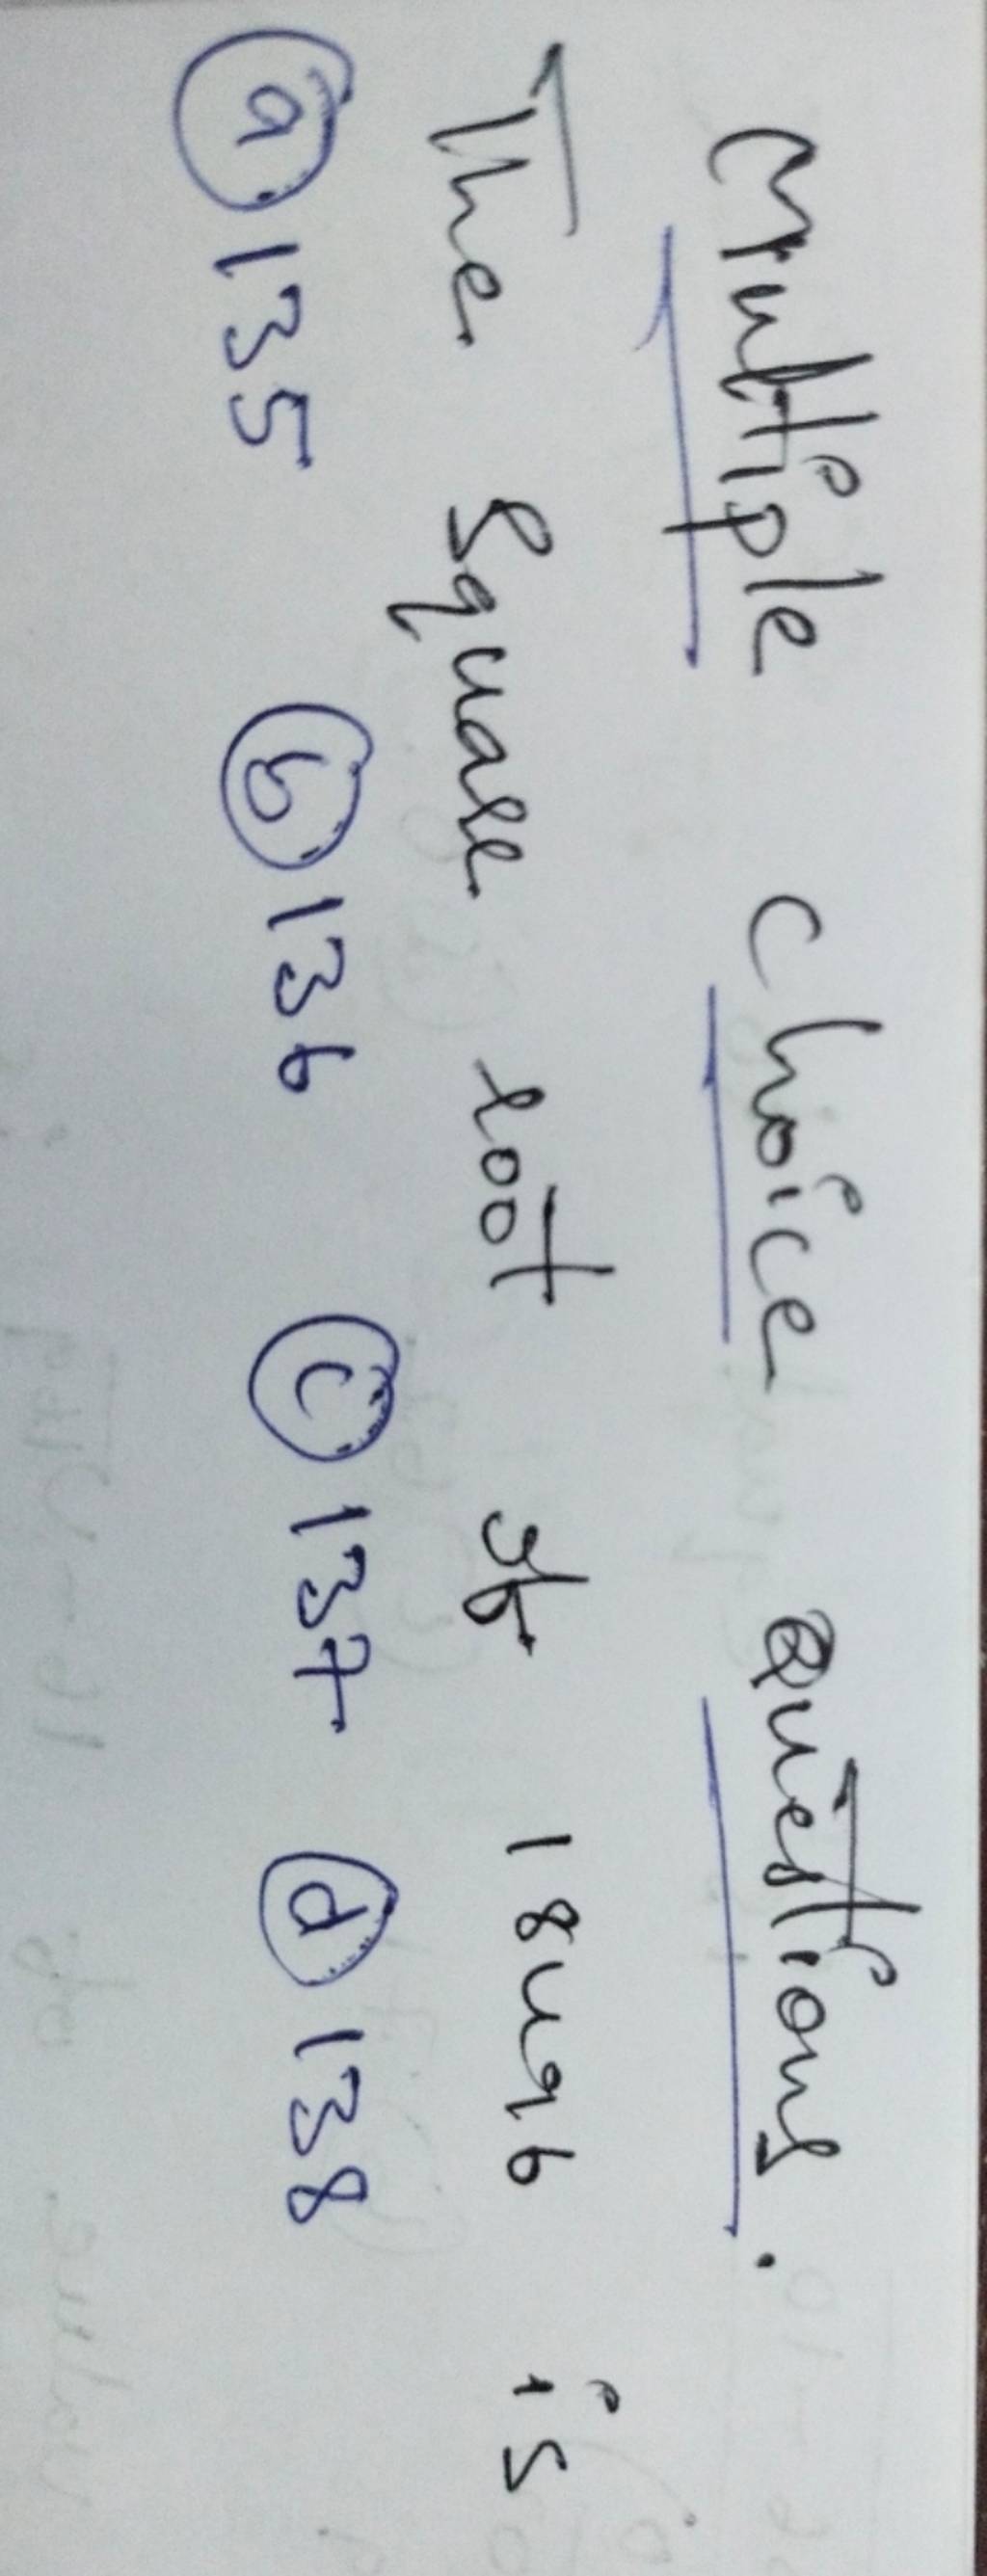 Multiple choice questions.
The square root of 18496 is
(a) 135 (b) 136 (c) 137 (d) 138